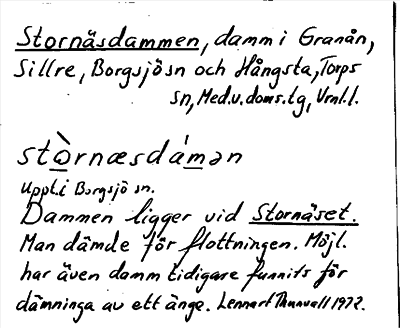 Stornäsdammen, damm i Granån,
Sillre, Borgsjö sn och Hångsta, Torps
sn, Med.v.doms.tg, Vrnl.l.
stò̱rnæsdám̱ən
Uppt. i Borgsjö sn.
Dammen ligger vid Stornäset.
Man dämde för flottningen. Möjl.
har även damm tidigare funnits för
dämninga av ett änge. Lennart Thunvall 1972.